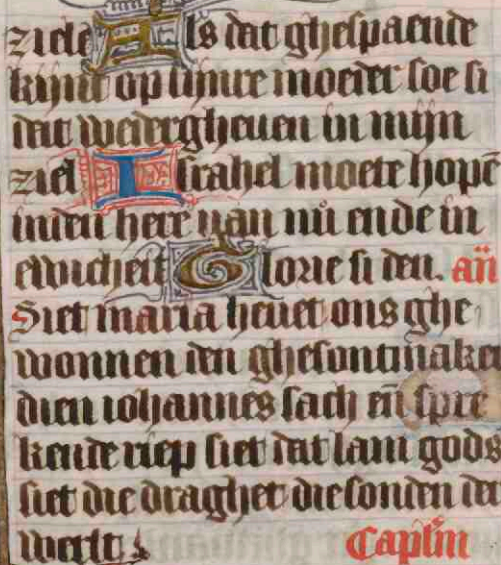 ziele Als dat ghespaende
kijnt op sijnre moeder soe si
dat wedergheuen in mijn
ziel Israhel moete hopē
inden here uan nu ende in
ewicheit Glorie si den. an̄
Siet maria heuet ons ghe
wonnen den ghesontmaker
dien iohannes sach en̄ spre
kende riep siet dat lam gods
siet die draghet die sonden der
werlt. Caplm̄